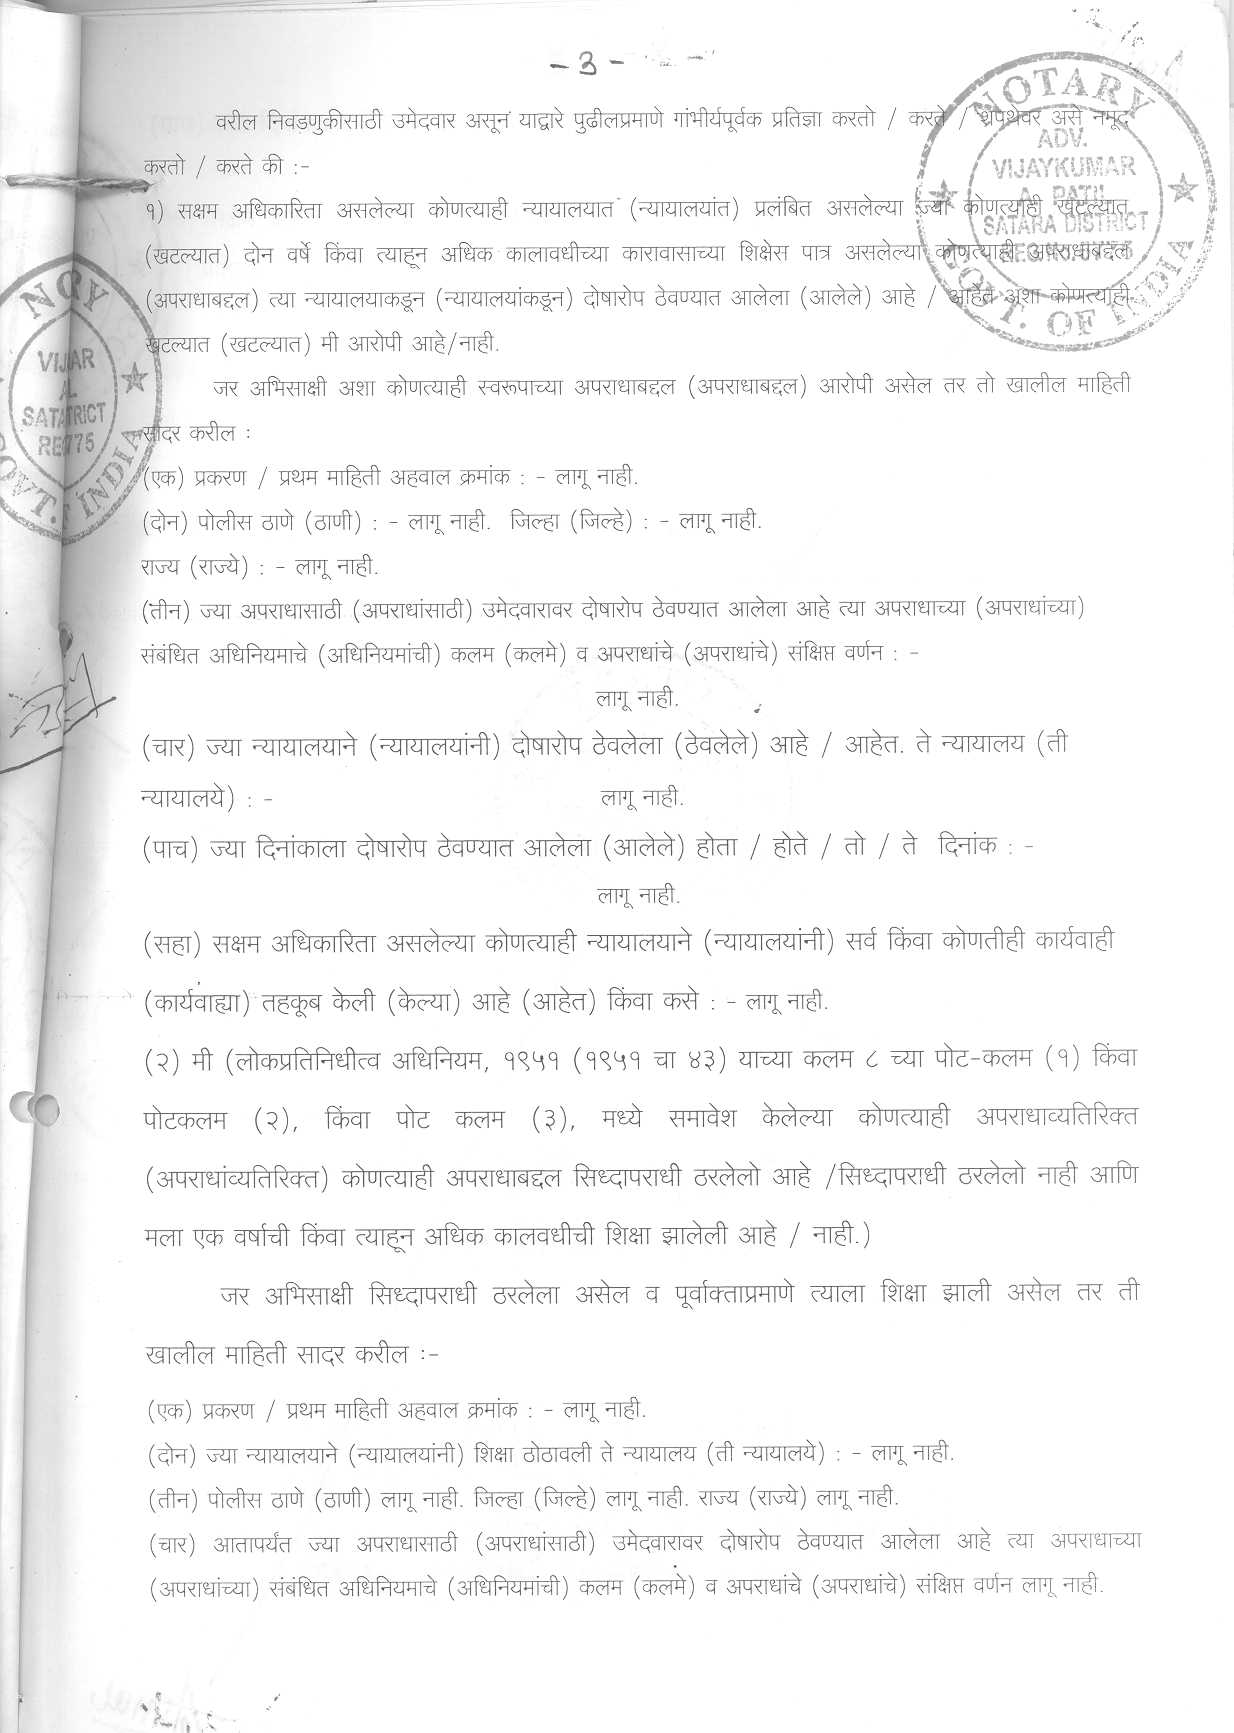 -3-
NOTARY
ADV.
VIJAYKUMAR
A. PATIL
SATARA DISTRICT
GOVT. OF INDIA
वरील निवडणुकीसाठी उमेदवार असून याद्वारे पुढीलप्रमाणे गांभीर्यपूर्वक प्रतिज्ञा करतो / करते / शपथेवर असे नमूद
करतो / करते की :-
१) सक्षम अधिकारिता असलेल्या कोणत्याही न्यायालयात (न्यायालयांत) प्रलंबित असलेल्या ज्या कोणत्याही खटल्यात
(खटल्यात) दोन वर्षे किंवा त्याहून अधिक कालावधीच्या कारावासाच्या शिक्षेस पात्र असलेल्या कोणत्याही अपराधाबद्दल
(अपराधाबद्दल) त्या न्यायालयाकडून (न्यायालयांकडून) दोषारोप ठेवण्यात आलेला (आलेले) आहे / आहेत अशा कोणत्याही
खटल्यात (खटल्यात) मी आरोपी आहे/नाही.
जर अभिसाक्षी अशा कोणत्याही स्वरूपाच्या अपराधाबद्दल (अपराधाबद्दल) आरोपी असेल तर तो खालील माहिती
सादर करील :
(एक) प्रकरण / प्रथम माहिती अहवाल क्रमांक : - लागू नाही.
(दोन) पोलीस ठाणे (ठाणी) : - लागू नाही. जिल्हा (जिल्हे) : - लागू नाही.
राज्य (राज्ये) : - लागू नाही.
(तीन) ज्या अपराधासाठी (अपराधांसाठी) उमेदवारावर दोषारोप ठेवण्यात आलेला आहे त्या अपराधाच्या (अपराधांच्या)
संबंधित अधिनियमाचे (अधिनियमांची) कलम (कलमे) व अपराधांचे (अपराधांचे) संक्षिप्त वर्णन : -
लागू नाही.
(चार) ज्या न्यायालयाने (न्यायालयांनी) दोषारोप ठेवलेला (ठेवलेले) आहे / आहेत. ते न्यायालय (ती
न्यायालये) : - लागू नाही.
(पाच) ज्या दिनांकाला दोषारोप ठेवण्यात आलेला (आलेले) होता / होते / तो / ते दिनांक : -
लागू नाही.
(सहा) सक्षम अधिकारिता असलेल्या कोणत्याही न्यायालयाने (न्यायालयांनी) सर्व किंवा कोणतीही कार्यवाही
(कार्यवाह्या) तहकूब केली (केल्या) आहे (आहेत) किंवा कसे : - लागू नाही.
(२) मी (लोकप्रतिनिधीत्व अधिनियम, १९५१ (१९५१ चा ४३) याच्या कलम ८ च्या पोट-कलम (१) किंवा
पोटकलम (२), किंवा पोट कलम (३), मध्ये समावेश केलेल्या कोणत्याही अपराधाव्यतिरिक्त
(अपराधांव्यतिरिक्त) कोणत्याही अपराधाबद्दल सिध्दापराधी ठरलेलो आहे /सिध्दापराधी ठरलेलो नाही आणि
मला एक वर्षाची किंवा त्याहून अधिक कालवधीची शिक्षा झालेली आहे / नाही.)
जर अभिसाक्षी सिध्दापराधी ठरलेला असेल व पूर्वाक्ताप्रमाणे त्याला शिक्षा झाली असेल तर ती
खालील माहिती सादर करील :-
(एक) प्रकरण / प्रथम माहिती अहवाल क्रमांक : - लागू नाही.
(दोन) ज्या न्यायालयाने (न्यायालयांनी) शिक्षा ठोठावली ते न्यायालय (ती न्यायालये) : - लागू नाही.
(तीन) पोलीस ठाणे (ठाणी) लागू नाही. जिल्हा (जिल्हे) लागू नाही. राज्य (राज्ये) लागू नाही.
(चार) आतापर्यंत ज्या अपराधासाठी (अपराधांसाठी) उमेदवारावर दोषारोप ठेवण्यात आलेला आहे त्या अपराधाच्या
(अपराधांच्या) संबंधित अधिनियमाचे (अधिनियमांची) कलम (कलमे) व अपराधांचे (अपराधांचे) संक्षिप्त वर्णन लागू नाही.